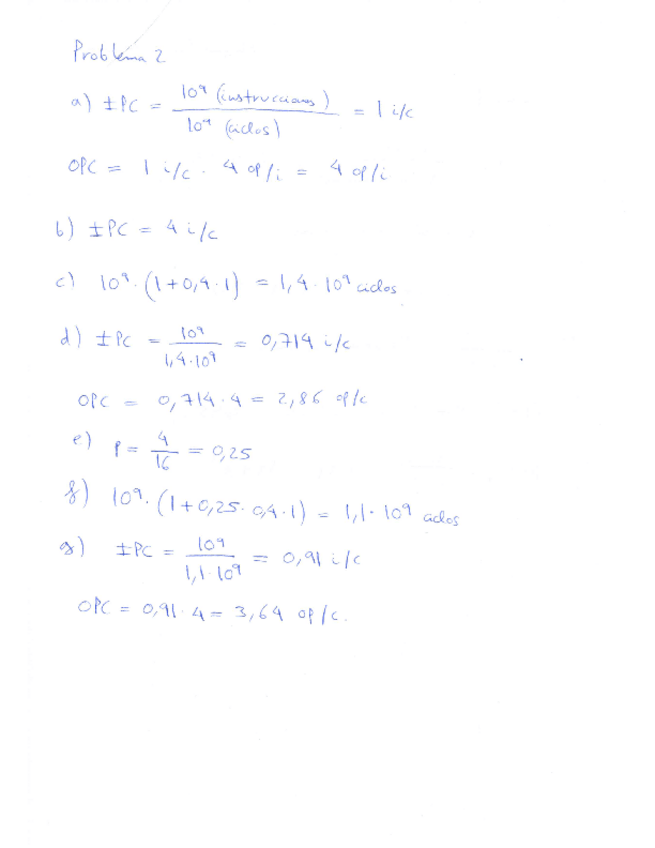 Problema 2
a) IPC = 10⁹ (instrucciones) / 10⁹ (ciclos) = 1 i/c
OPC = 1 i/c · 4 op/i = 4 op/i
b) IPC = 4 i/c
c) 10⁹ · (1+0,4·1) = 1,4 · 10⁹ ciclos
d) IPC = 10⁹ / 1,4·10⁹ = 0,714 i/c
OPC = 0,714 · 4 = 2,86 op/c
e) P = 4 / 16 = 0,25
f) 10⁹ · (1+0,25 · 0,4·1) = 1,1 · 10⁹ ciclos
g) IPC = 10⁹ / 1,1·10⁹ = 0,91 i/c
OPC = 0,91 · 4 = 3,64 op/c.